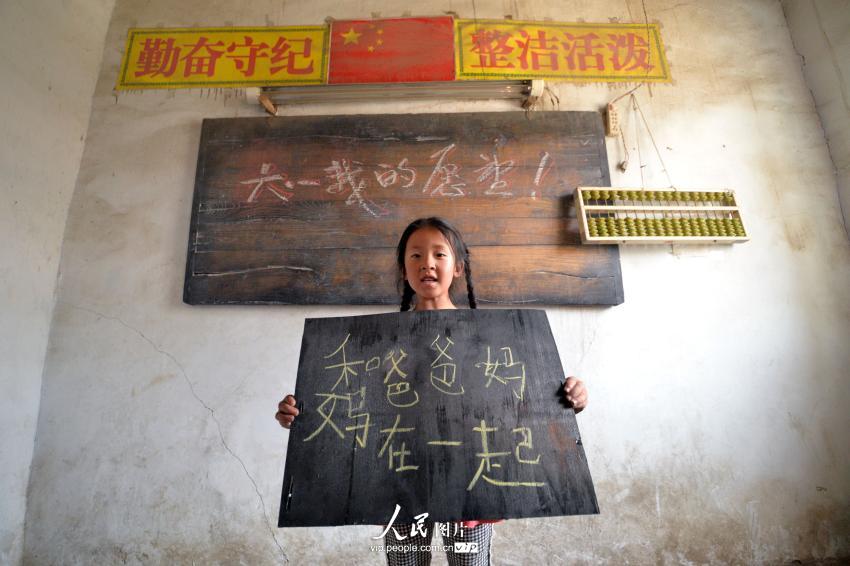 勤奋守纪 整洁活泼
六一我的愿望!
和爸爸妈
妈在一起
人民图片
vip.people.com.cn VIP